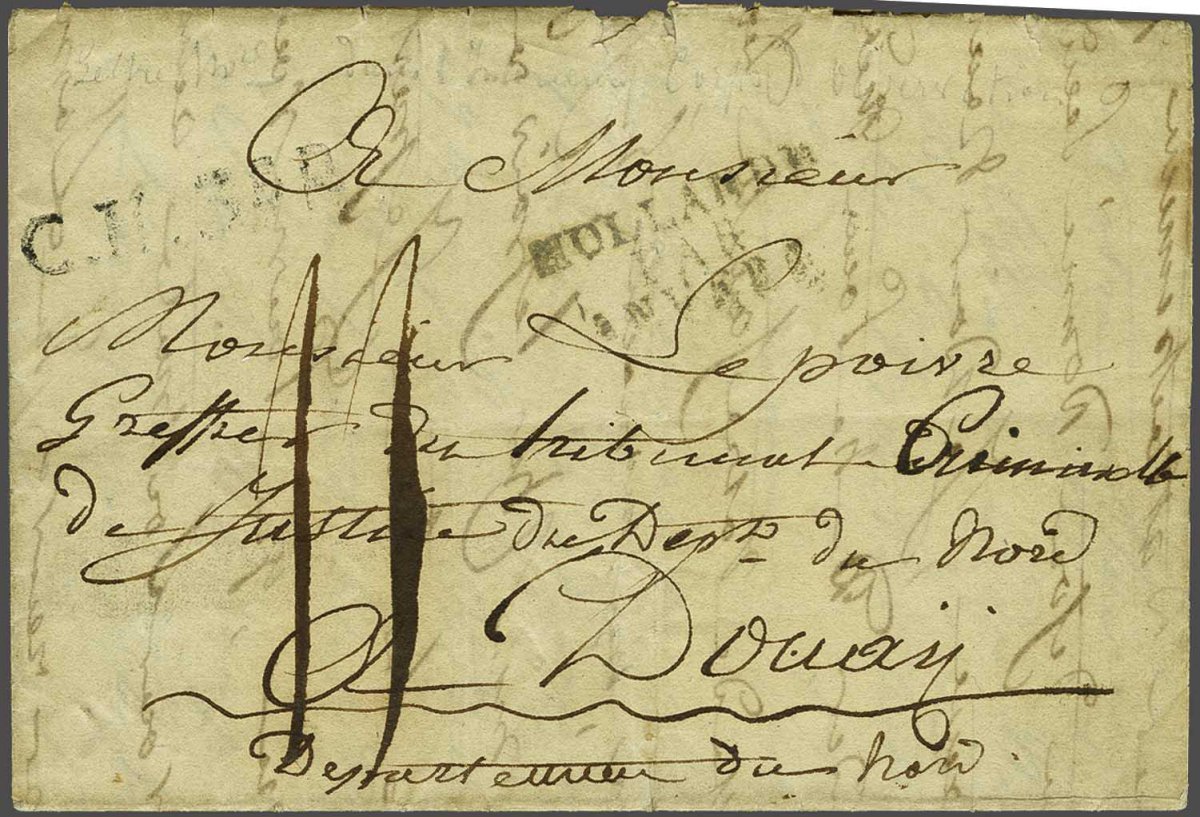 A Monsieur
C.H. 3e D.
HOLLANDE
PAR
ANVERS
Monsieur Lepoivre
Greffier du tribunal Criminelle
de Justice du Dept du Nord
A Douaÿ
Departement du Nord.